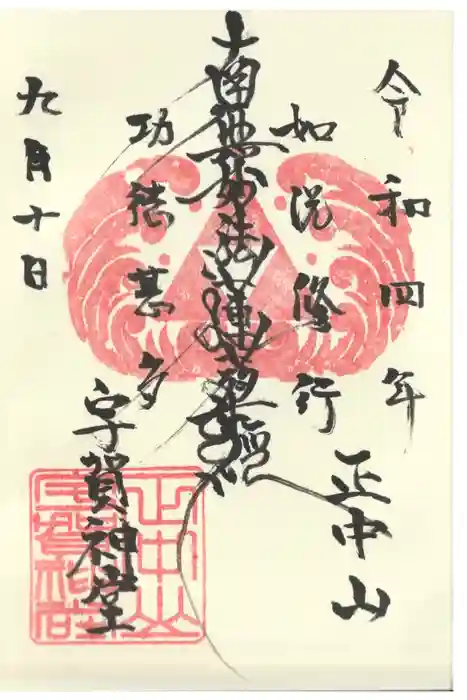 令和四年
正中山
如説修行
南無妙法蓮華経
功徳甚多
宇賀神堂
九月十日